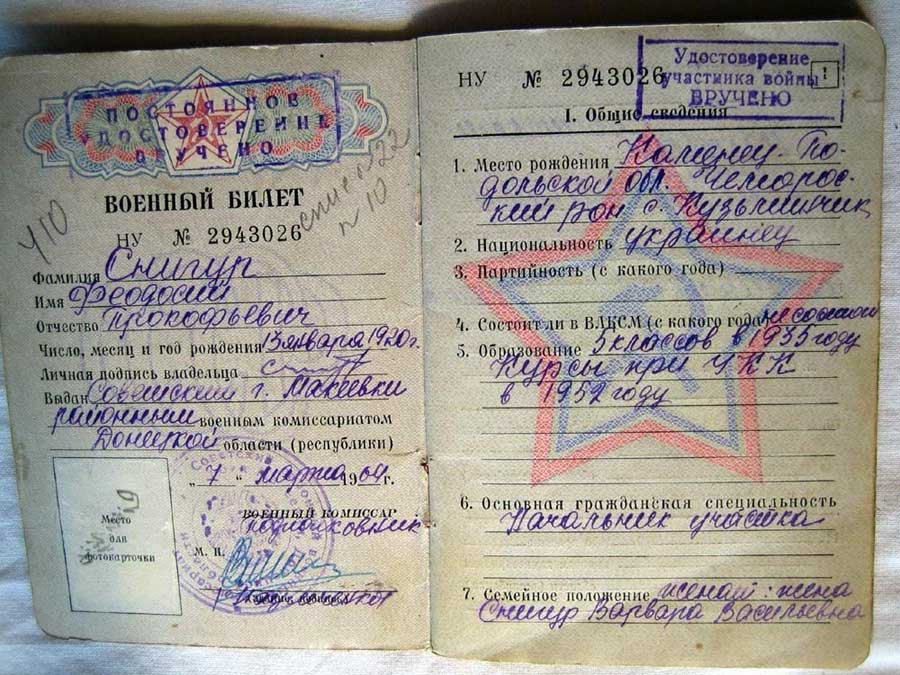 ПОСТОЯННОЕ
УДОСТОВЕРЕНИЕ
ВРУЧЕНО
список 22
п 10
410
ВОЕННЫЙ БИЛЕТ
НУ № 2943026
Фамилия Снигур
Имя Феодосий
Отчество Прокофьевич
Число, месяц и год рождения 13 января 1920 г.
Личная подпись владельца
Выдан Советским г. Макеевки
районным военным комиссариатом
Донецкой области (республики)
„7" марта 1964 г.
ВОЕННЫЙ КОМИССАР
подполковник
М. П.
Место
для
фотокарточки
НУ № 2943026
Удостоверение
участника войны
ВРУЧЕНО
1
I. Общие сведения
1. Место рождения Каменец-По-
дольской обл. Чемеровс-
кий рон с. Кузьминчик
2. Национальность украинец
3. Партийность (с какого года) —
4. Состоит ли в ВЛКСМ (с какого года) не состоит
5. Образование 5 классов в 1935 году
Курсы при УКК
в 1952 году
6. Основная гражданская специальность
Начальник участка
7. Семейное положение женат: жена
Снигур Варвара Васильевна